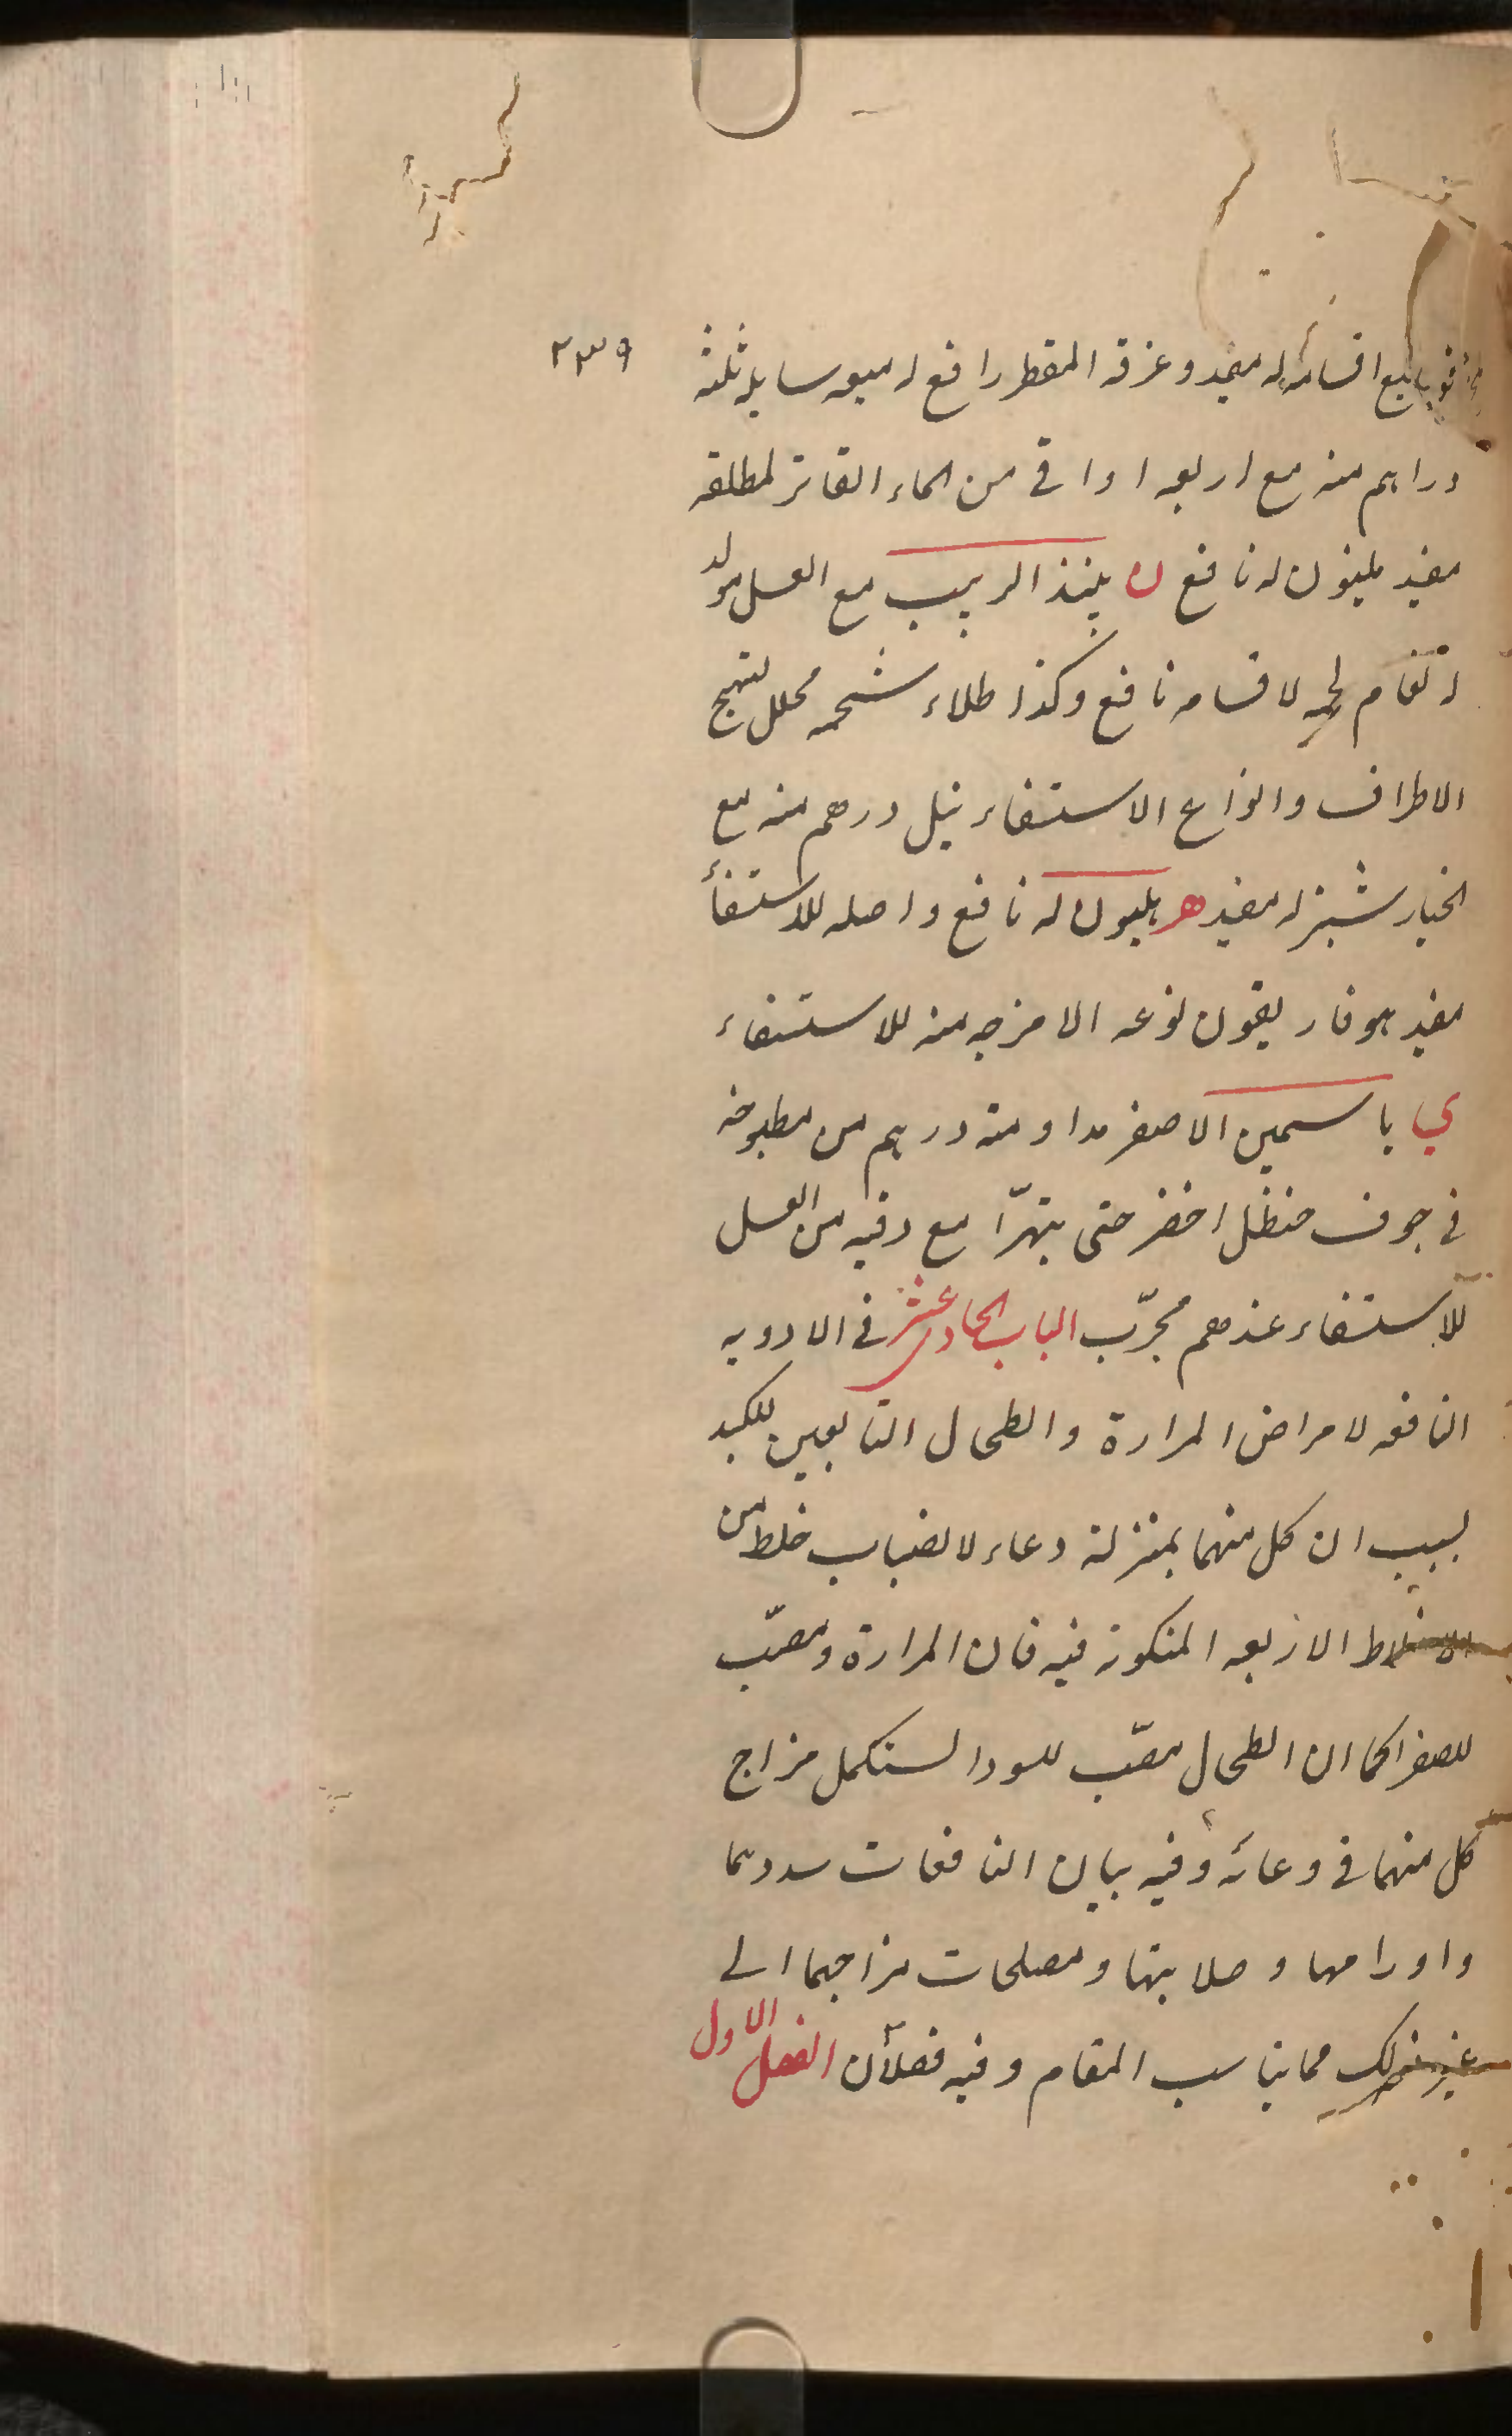 ٢٣٩
اقسامه له مفيد وعرقه المقطر رافع له ميعه سايله ثلثة
دراهم منه مع اربعه اواقي من الماء الفاتر لمطلقه
مفيد مليون له نافع ن نبيذ الزبيب مع العسل مولد
لحمه لاقسامه نافع وكذا طلاء شحمه محلل لتهيج
الاطراف وانواع الاستسقاء نيل درهم منه مع
الخيار شنبر له مفيد هـ هليون له نافع واصله للاستسقاء
مفيد هوفاريقون نوعه الا مزجه منه للاستسقاء
ي ياسمين الاصفر مداومة درهم من مطبوخه
في جوف حنظل اخضر حتى يتهرّا مع وقيه من العسل
للاستسقاء عندهم مجرّب الباب الحادي عشر في الادويه
النافعه لامراض المرارة والطحال التابعين للكبد
لسبب ان كل منهما بمنزلة وعاء لانصباب خلط من
الاخلاط الاربعه المتكونة فيه فان المرارة ومصبّ
للصفرا كما ان الطحال مصبّ للسودا لستكمل مزاج
كل منهما في وعائه وفيه بيان النافعات سددهما
واورامها وصلابتها ومصلحات مزاجهما الى
غير ذلك مما يناسب المقام وفيه فصلان الفصل الاول